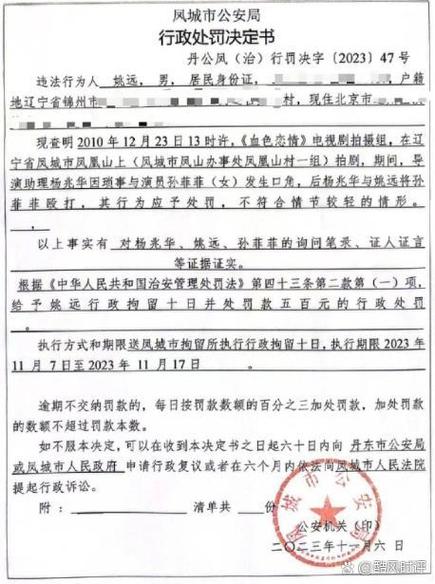 凤城市公安局
行政处罚决定书
丹公凤（治）行罚决字〔2023〕47号
违法行为人 姚远，男，居民身份证， 户籍
地辽宁省锦州市 村，现住北京市

现查明2010年12月23日13时许，《血色恋情》电视剧拍摄组，在辽
宁省凤城市凤凰山上（凤城市凤山办事处凤凰山村一组）拍剧，期间，导
演助理杨兆华因琐事与演员孙菲菲（女）发生口角，后杨兆华与姚远将孙
菲菲殴打，其行为应予处罚，不符合情节较轻的情形。
以上事实有 对杨兆华、姚远、孙菲菲的询问笔录、证人证言
等证据证实。
根据《中华人民共和国治安管理处罚法》第四十三条第二款第（一）项，
给予姚远行政拘留十日并处罚款五百元的行政处罚
。
执行方式和期限送凤城市拘留所执行行政拘留十日，执行期限2023年
11月7日至2023年11月17日 。
逾期不交纳罚款的，每日按罚款数额的百分之三加处罚款，加处罚款
的数额不超过罚款本数。
如不服本决定，可以在收到本决定书之日起六十日内向 丹东市公安局
或凤城市人民政府 申请行政复议或者在六个月内依法向凤城市人民法院
提起行政诉讼。
附： 清单共 份
公安机关（印）
二〇二三年十一月六日
凤城市公安局
酷风时评